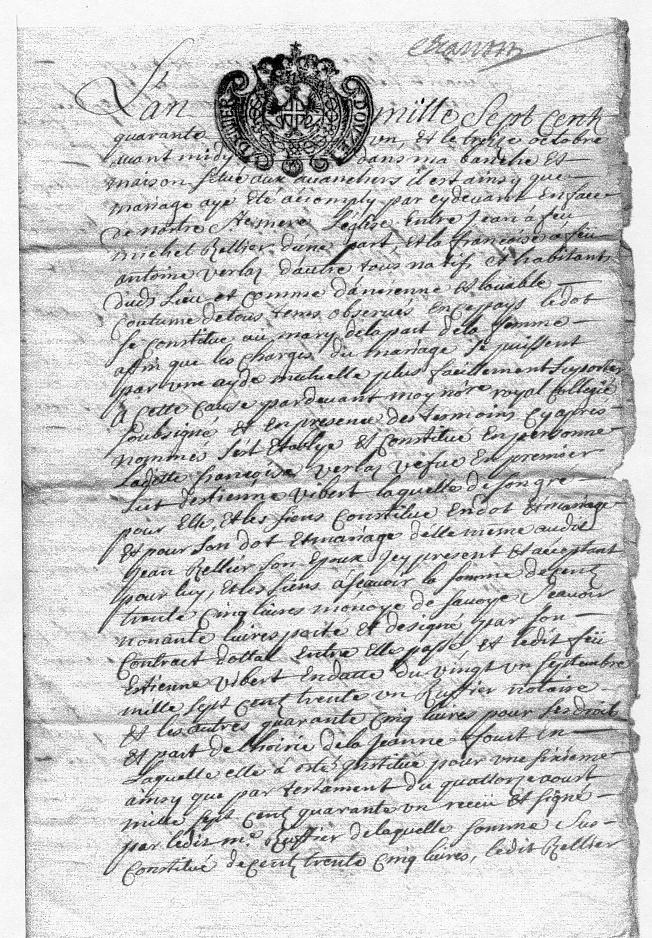 L'an mille Sept Cent
DENIER DOVZE
quarante un, et le treize octobre
avant midy dans ma banche et
maison scitue aux avanchers il est ainsy que
mariage aye eté accomply par cydevant en face
de nostre Ste mere L'église Entre Jean a feu
michel Rellier d'une part, et la françoise a feu
antoine verlaz d'autre tous natifs et habitants
dudt Lieu et comme d'ancienne et louable
Coutume de tous tems observés en ce pays le dot
se constitue au mary de la part de la femme
affin que les charges du mariage se puissent
par une ayde mutuelle plus facillement suporter
A cette cause pardevant moy nore royal collegié
soubsigné et en presence des tesmoins cy apres
nommés s'est Etablye et Constitué en personne
Laditte françoise verlaz vefue en premier
Lict d'estienne vibert laquelle de son gré
pour Elle, Et les siens Constitue en dot et mariage
Et pour son dot et mariage d'elle meme audit
Jean Rellier son Epoux icy present et acceptant
pour luy, et les siens a sçavoir la somme de cent
trente cinq livres monoye de savoye sçavoir
nonante livres porté et designé par son
Contract dottal entre elle passé, et ledit feu
Estienne vibert en datte du vingt un septembre
mille sept cent trente un Ruffier notaire
et les autres quarante cinq livres pour ses droit
et part de hoirie de la Jeanne in
Laquelle elle a esté institue pour une sixieme
ainsy que par testament du quattorze aoust
mille sept cent quarante un receu et signé
par ledit me. Ruffier de laquelle somme Sus
Constitué de cent trente cinq livres, ledit Rellier